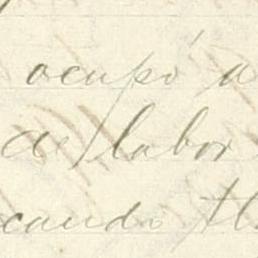 ocupó a
de labor
cando th